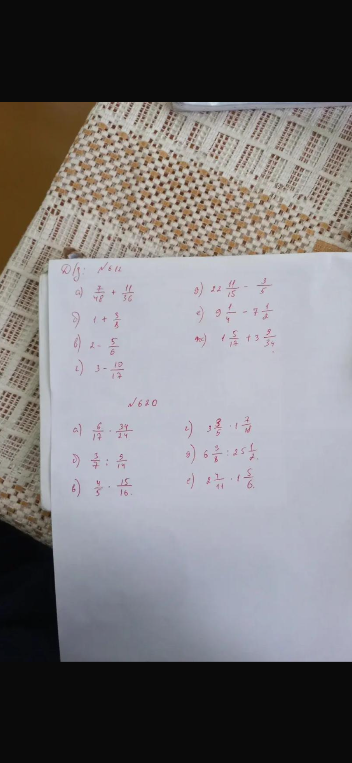 Д/з: №612
а) 7/48 + 11/36
б) 1 + 3/8
в) 2 - 5/6
г) 3 - 10/17
д) 22 11/15 - 3/5
е) 9 1/4 - 7 1/2
ж) 1 5/17 + 3 9/34
№620
а) 6/17 · 34/24
б) 3/7 : 9/14
в) 4/5 · 15/16
г) · 1 7/8
д) 6 3/8 : 25 1/2
е) 2 2/11 · 1 5/6